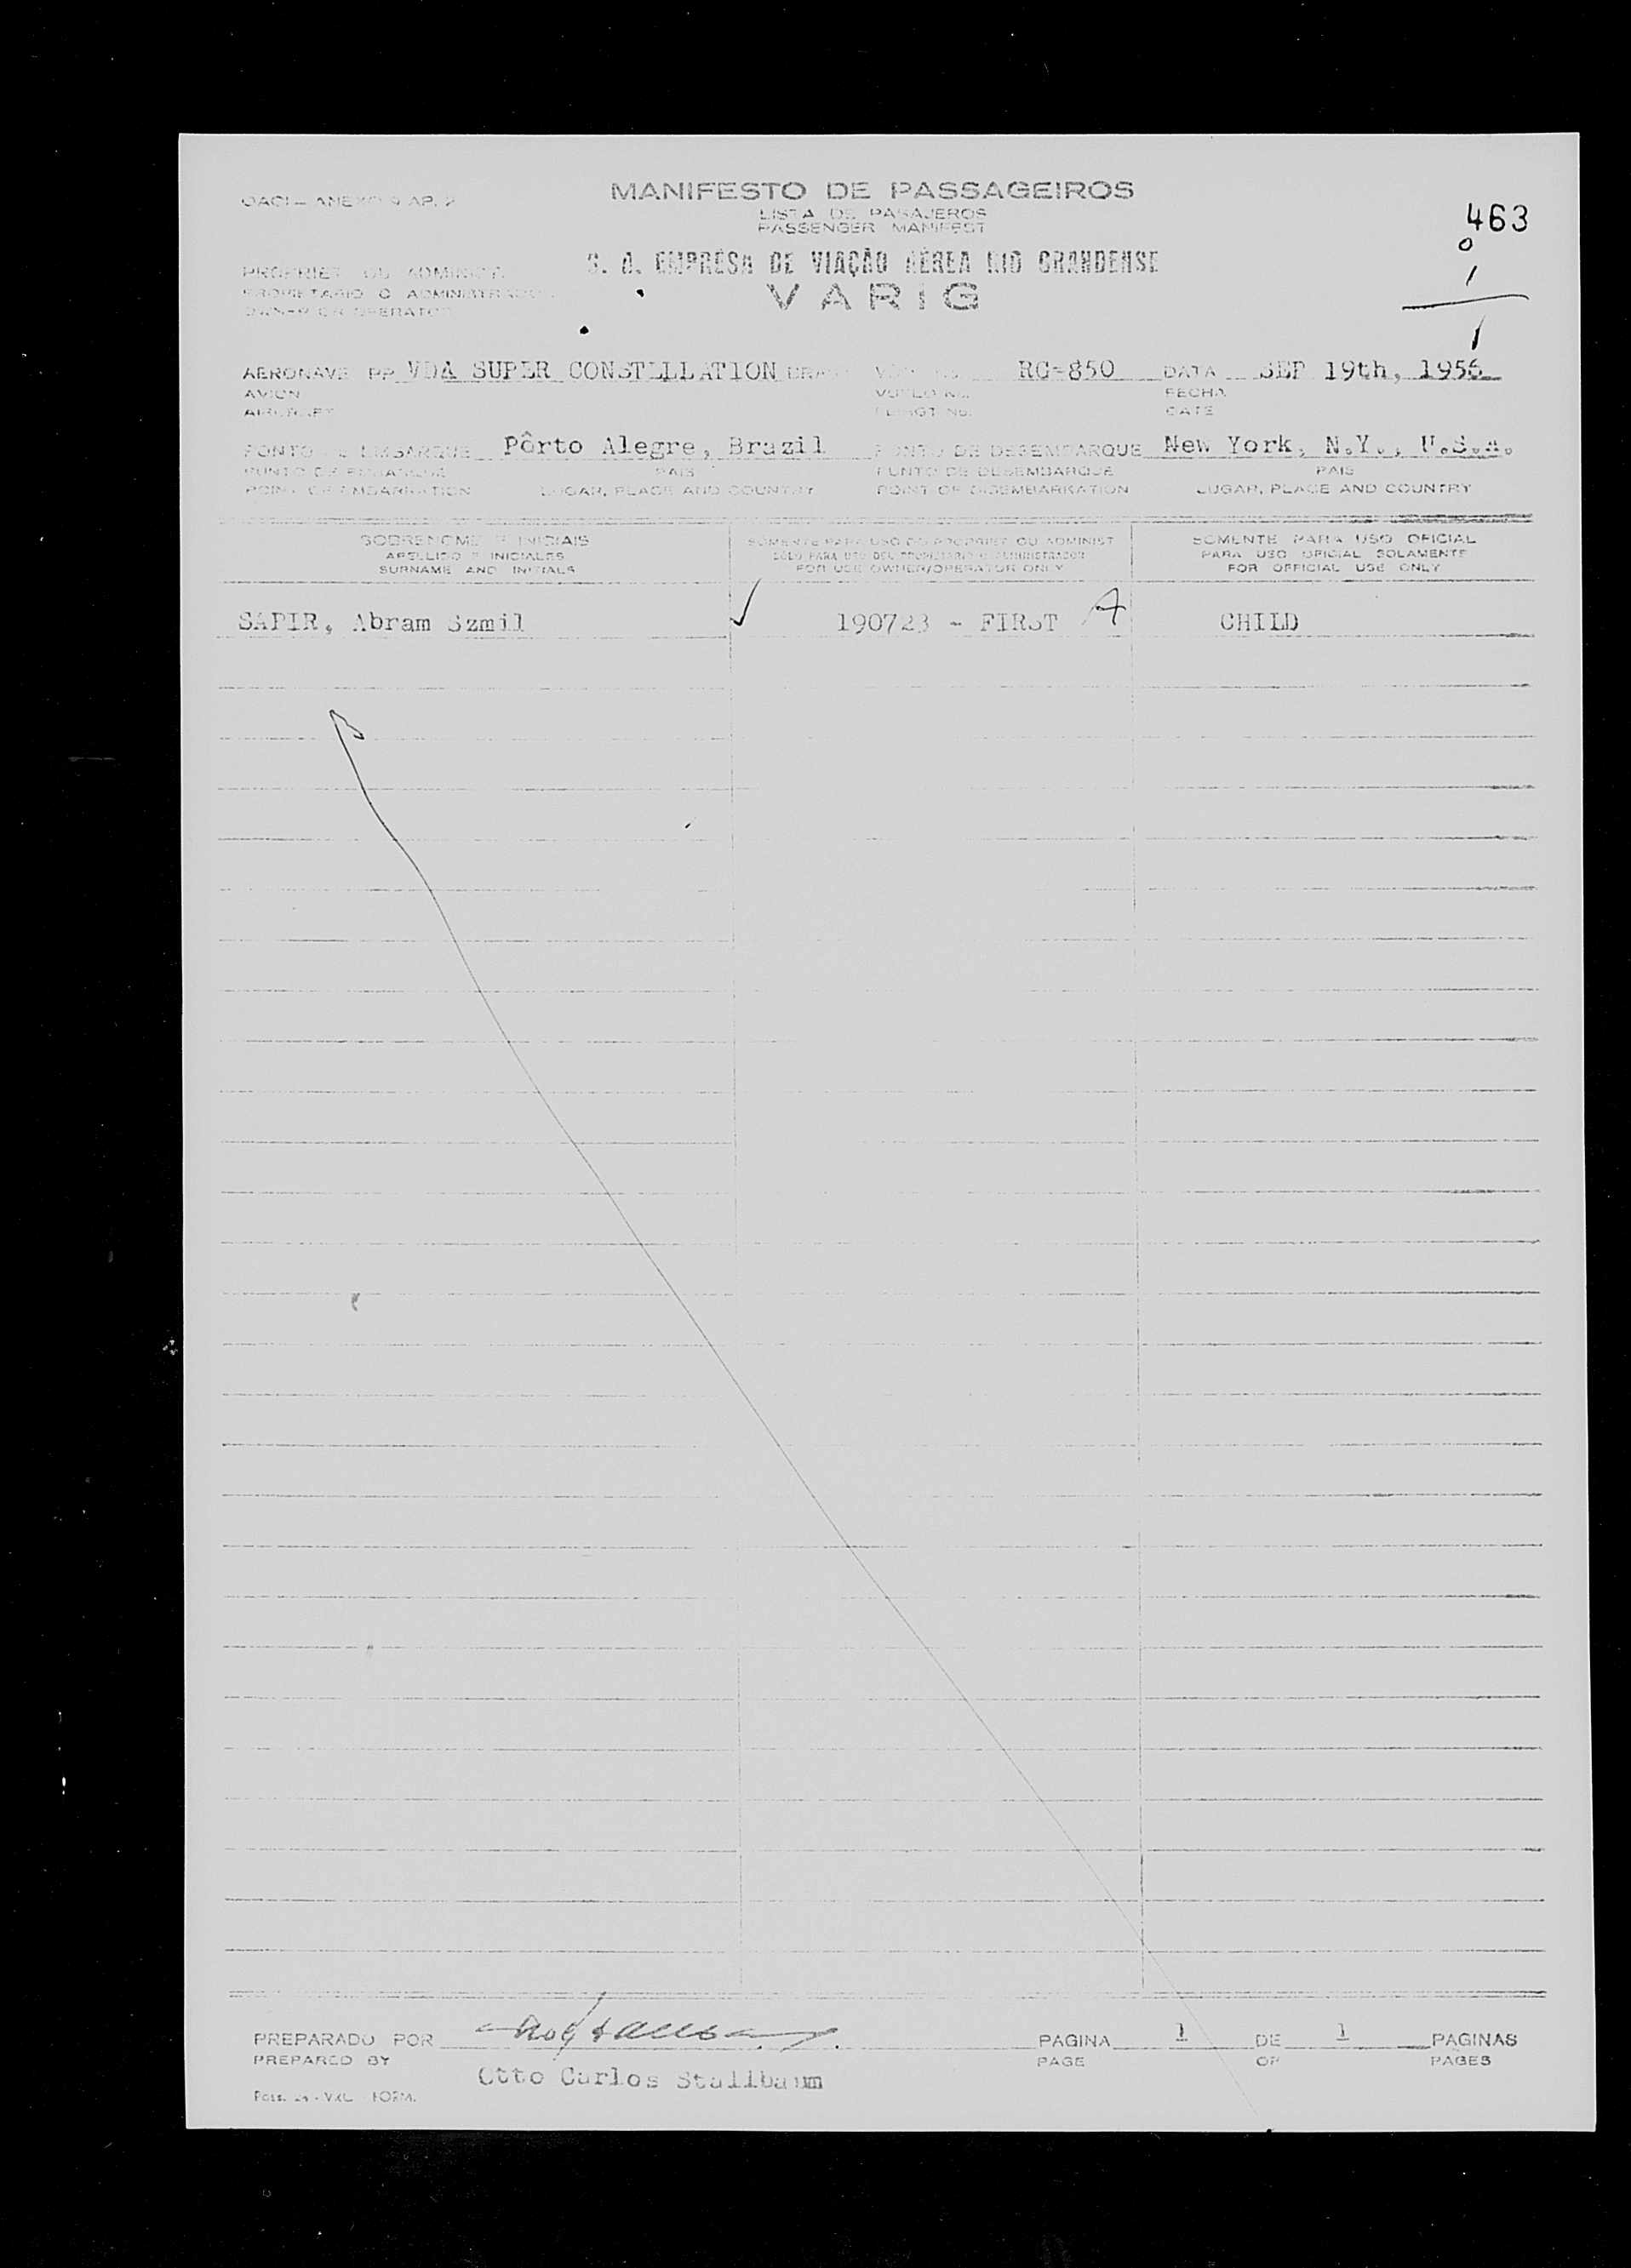 OACI — ANEXO 9 AP. 2
MANIFESTO DE PASSAGEIROS
LISTA DE PASAJEROS
PASSENGER MANIFEST
463
0
1
1
PROPRIET. OU ADMINIST.
PROPIETARIO O ADMINISTRADOR
OWNER OR OPERATOR
S. A. EMPRÊSA DE VIAÇÃO AÉREA RIO GRANDENSE
VARIG
AERONAVE PP VDA SUPER CONSTELLATION RG-850 DATA SEP 19th, 1956
AVION VUELO No. FECHA
AIRCRAFT FLIGT No. DATE
PONTO DE EMBARQUE Pôrto Alegre, Brazil PONTO DE DESEMBARQUE New York, N.Y., U.S.A.
PUNTO DE EMBARQUE PAIS PUNTO DE DESEMBARQUE PAIS
POINT OF EMBARKATION LUGAR, PLACE AND COUNTRY POINT OF DISEMBARKATION LUGAR, PLACE AND COUNTRY
SOBRENOME E INICIAIS SOMENTE PARA USO DO PROPRIET. OU ADMINIST SOMENTE PARA USO OFICIAL
APELLIDO E INICIALES SOLO PARA USO DEL PROPIETARIO O ADMINISTRADOR PARA USO OFICIAL SOLAMENTE
SURNAME AND INITIALS FOR USE OWNER/OPERATOR ONLY FOR OFFICIAL USE ONLY
SAPIR, Abram Szmil 190723 - FIRST A CHILD
PREPARADO POR PAGINA 1 DE 1 PAGINAS
PREPARED BY PAGE OF PAGES
Otto Carlos Stallbaum